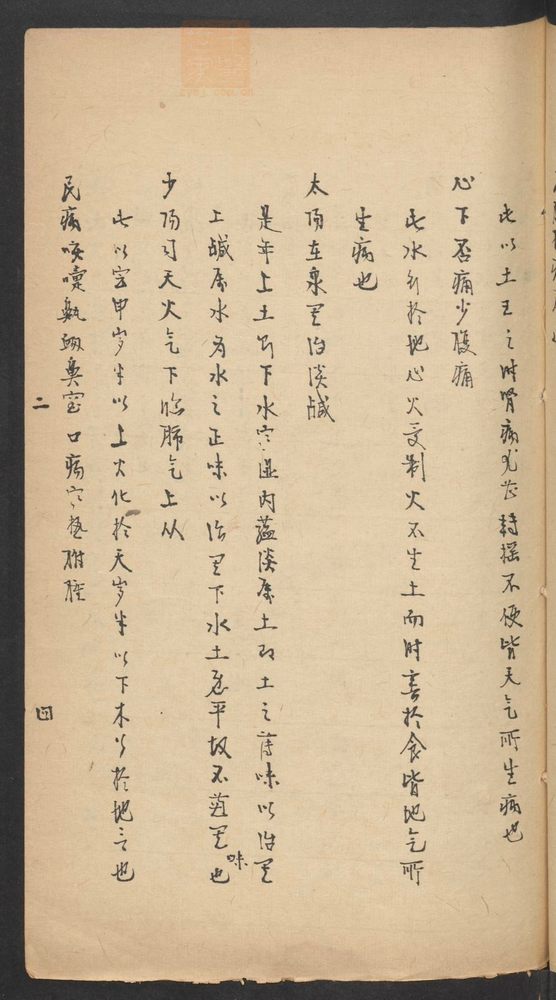 此以土王之时肾病尤甚封摇不便皆天气所生病也
心下否痛少腹痛
此水行於地心火受制火不生土而时害於食皆地气所
生病也
太阳在泉里治淡咸
是年上土司下水寒湿内蕴淡属土取土之薄味以治里
上咸属水为水之正味以治里下水土悉平故不苛里味也
少阳司天火气下临肺气上从
此以寅申岁半以上火化於天岁半以下木以於地言也
民病咳嚏鼽衄鼻窒口疡寒热胕肿
二
四